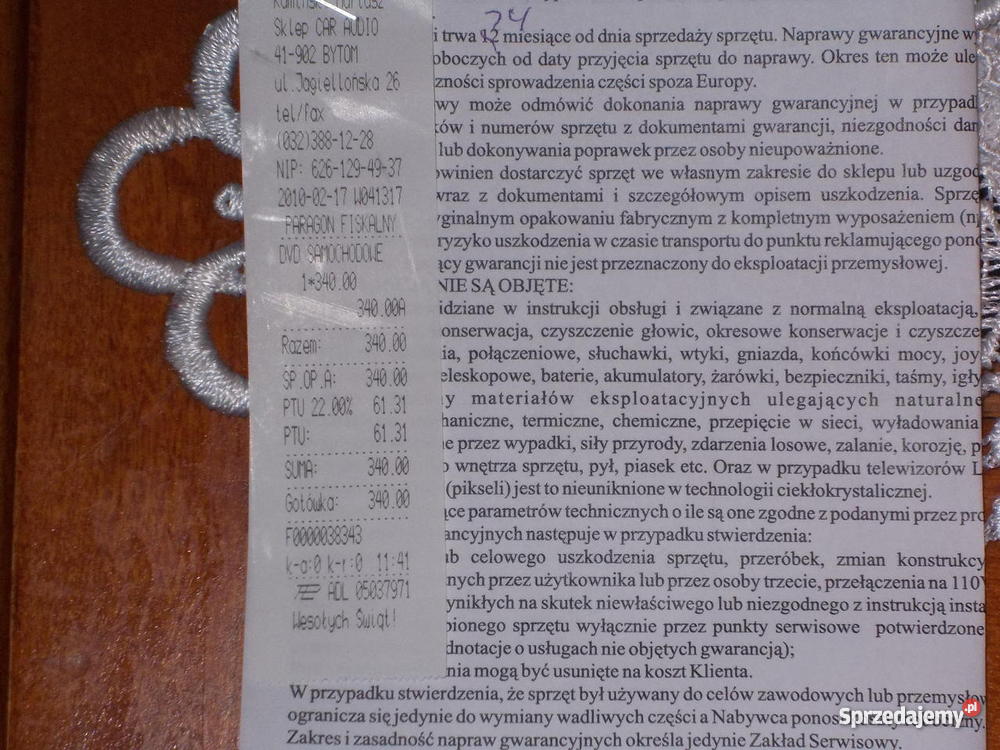 Sklep CAR AUDIO
41-902 BYTOM
ul.Jagiellońska 26
tel/fax
(032)388-12-28
NIP: 626-129-49-37
2010-02-17 W041317
PARAGON FISKALNY
DVD SAMOCHODOWE
1*340.00
340.00A
Razem: 340.00
SP.OP.A: 340.00
PTU 22.00% 61.31
PTU: 61.31
SUMA: 340.00
Gotówka: 340.00
F0000038343
k-a:0 k-r:0 11:41
ADL 05037971
Wesołych Świąt!
24
i trwa 12 miesiące od dnia sprzedaży sprzętu. Naprawy gwarancyjne w
oboczych od daty przyjęcia sprzętu do naprawy. Okres ten może ule
zności sprowadzenia części spoza Europy.
wy może odmówić dokonania naprawy gwarancyjnej w przypad
ków i numerów sprzętu z dokumentami gwarancji, niezgodności dan
lub dokonywania poprawek przez osoby nieupoważnione.
owinien dostarczyć sprzęt we własnym zakresie do sklepu lub uzgod
wraz z dokumentami i szczegółowym opisem uszkodzenia. Sprzę
yginalnym opakowaniu fabrycznym z kompletnym wyposażeniem (n
ryzyko uszkodzenia w czasie transportu do punktu reklamującego pono
ący gwarancji nie jest przeznaczony do eksploatacji przemysłowej.
NIE SĄ OBJĘTE:
idziane w instrukcji obsługi i związane z normalną eksploatacją,
onserwacja, czyszczenie głowic, okresowe konserwacje i czyszcze
ia, połączeniowe, słuchawki, wtyki, gniazda, końcówki mocy, joy
eleskopowe, baterie, akumulatory, żarówki, bezpieczniki, taśmy, igły
y materiałów eksploatacyjnych ulegających naturalne
haniczne, termiczne, chemiczne, przepięcie w sieci, wyładowania
ne przez wypadki, siły przyrody, zdarzenia losowe, zalanie, korozję, p
o wnętrza sprzętu, pył, piasek etc. Oraz w przypadku telewizorów L
(pikseli) jest to nieuniknione w technologii ciekłokrystalicznej.
ące parametrów technicznych o ile są one zgodne z podanymi przez pro
ancyjnych następuje w przypadku stwierdzenia:
ub celowego uszkodzenia sprzętu, przeróbek, zmian konstrukcy
nych przez użytkownika lub przez osoby trzecie, przełączenia na 110V
ynikłych na skutek niewłaściwego lub niezgodnego z instrukcją insta
pionego sprzętu wyłącznie przez punkty serwisowe potwierdzone
dnotacje o usługach nie objętych gwarancją);
nia mogą być usunięte na koszt Klienta.
W przypadku stwierdzenia, że sprzęt był używany do celów zawodowych lub przemysłow
ogranicza się jedynie do wymiany wadliwych części a Nabywca ponos
Zakres i zasadność napraw gwarancyjnych określa jedynie Zakład Serwisowy.
Sprzedajemy.pl